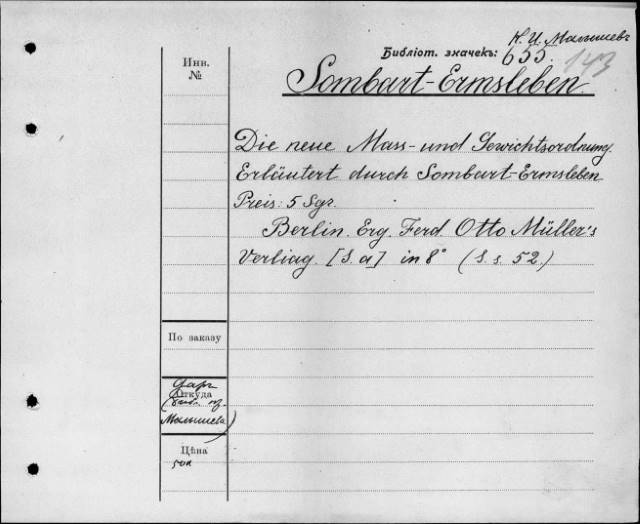 К. И. Малышевъ
Библіот. значекъ: 655.
143
Инв.
№
Sombart-Ermsleben
Die neue Mass- und Gewichtsordnung
Erläutert durch Sombart-Ermsleben
Preis: 5 Sgr.
Berlin. Erg. Ferd. Otto Müller's
Verliag. [S. a] in 8° (S. s. 52.)
По заказу
Даръ
Откуда
Малышева)
Цѣна
50к